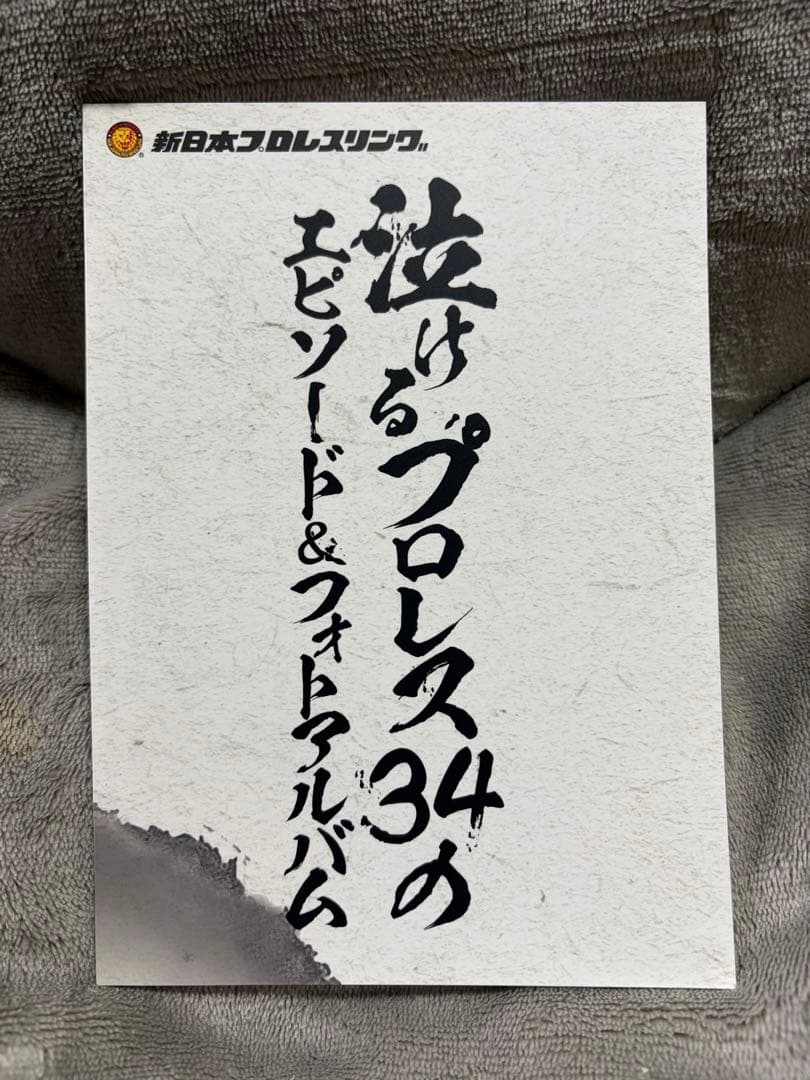 新日本プロレスリング
泣けるプロレス34の
エピソード&フォトアルバム